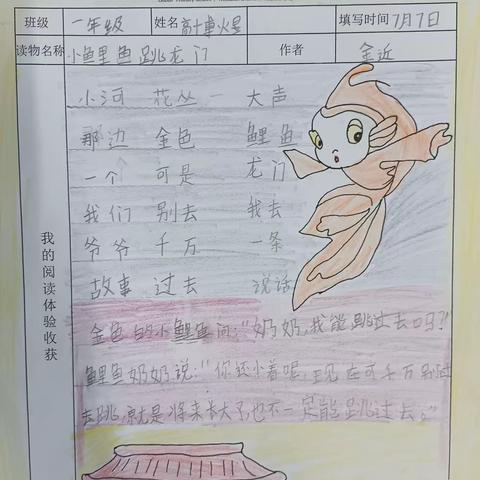 班级 一年级 姓名 填写时间 7月7日
读物名称 小鲤鱼跳龙门 作者 金近
我的阅读体验收获
小河 花丛 大声
那边 金色 鲤鱼
一个 可是 龙门
我们 别去 我去
爷爷 千万 一条
故事 过去 说话
金色的小鲤鱼问:“奶奶,我能跳过去吗?”
鲤鱼奶奶说:“你还小着呢,现在可千万别过
去跳,就是将来长大了,也不一定能跳过去。”